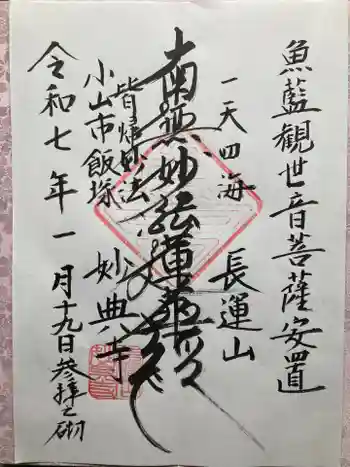 魚藍観世音菩薩安置
一天四海
長運山
南無妙法蓮華経
皆帰妙法
妙典寺
小山市飯塚
令和七年一月十九日参拝之砌